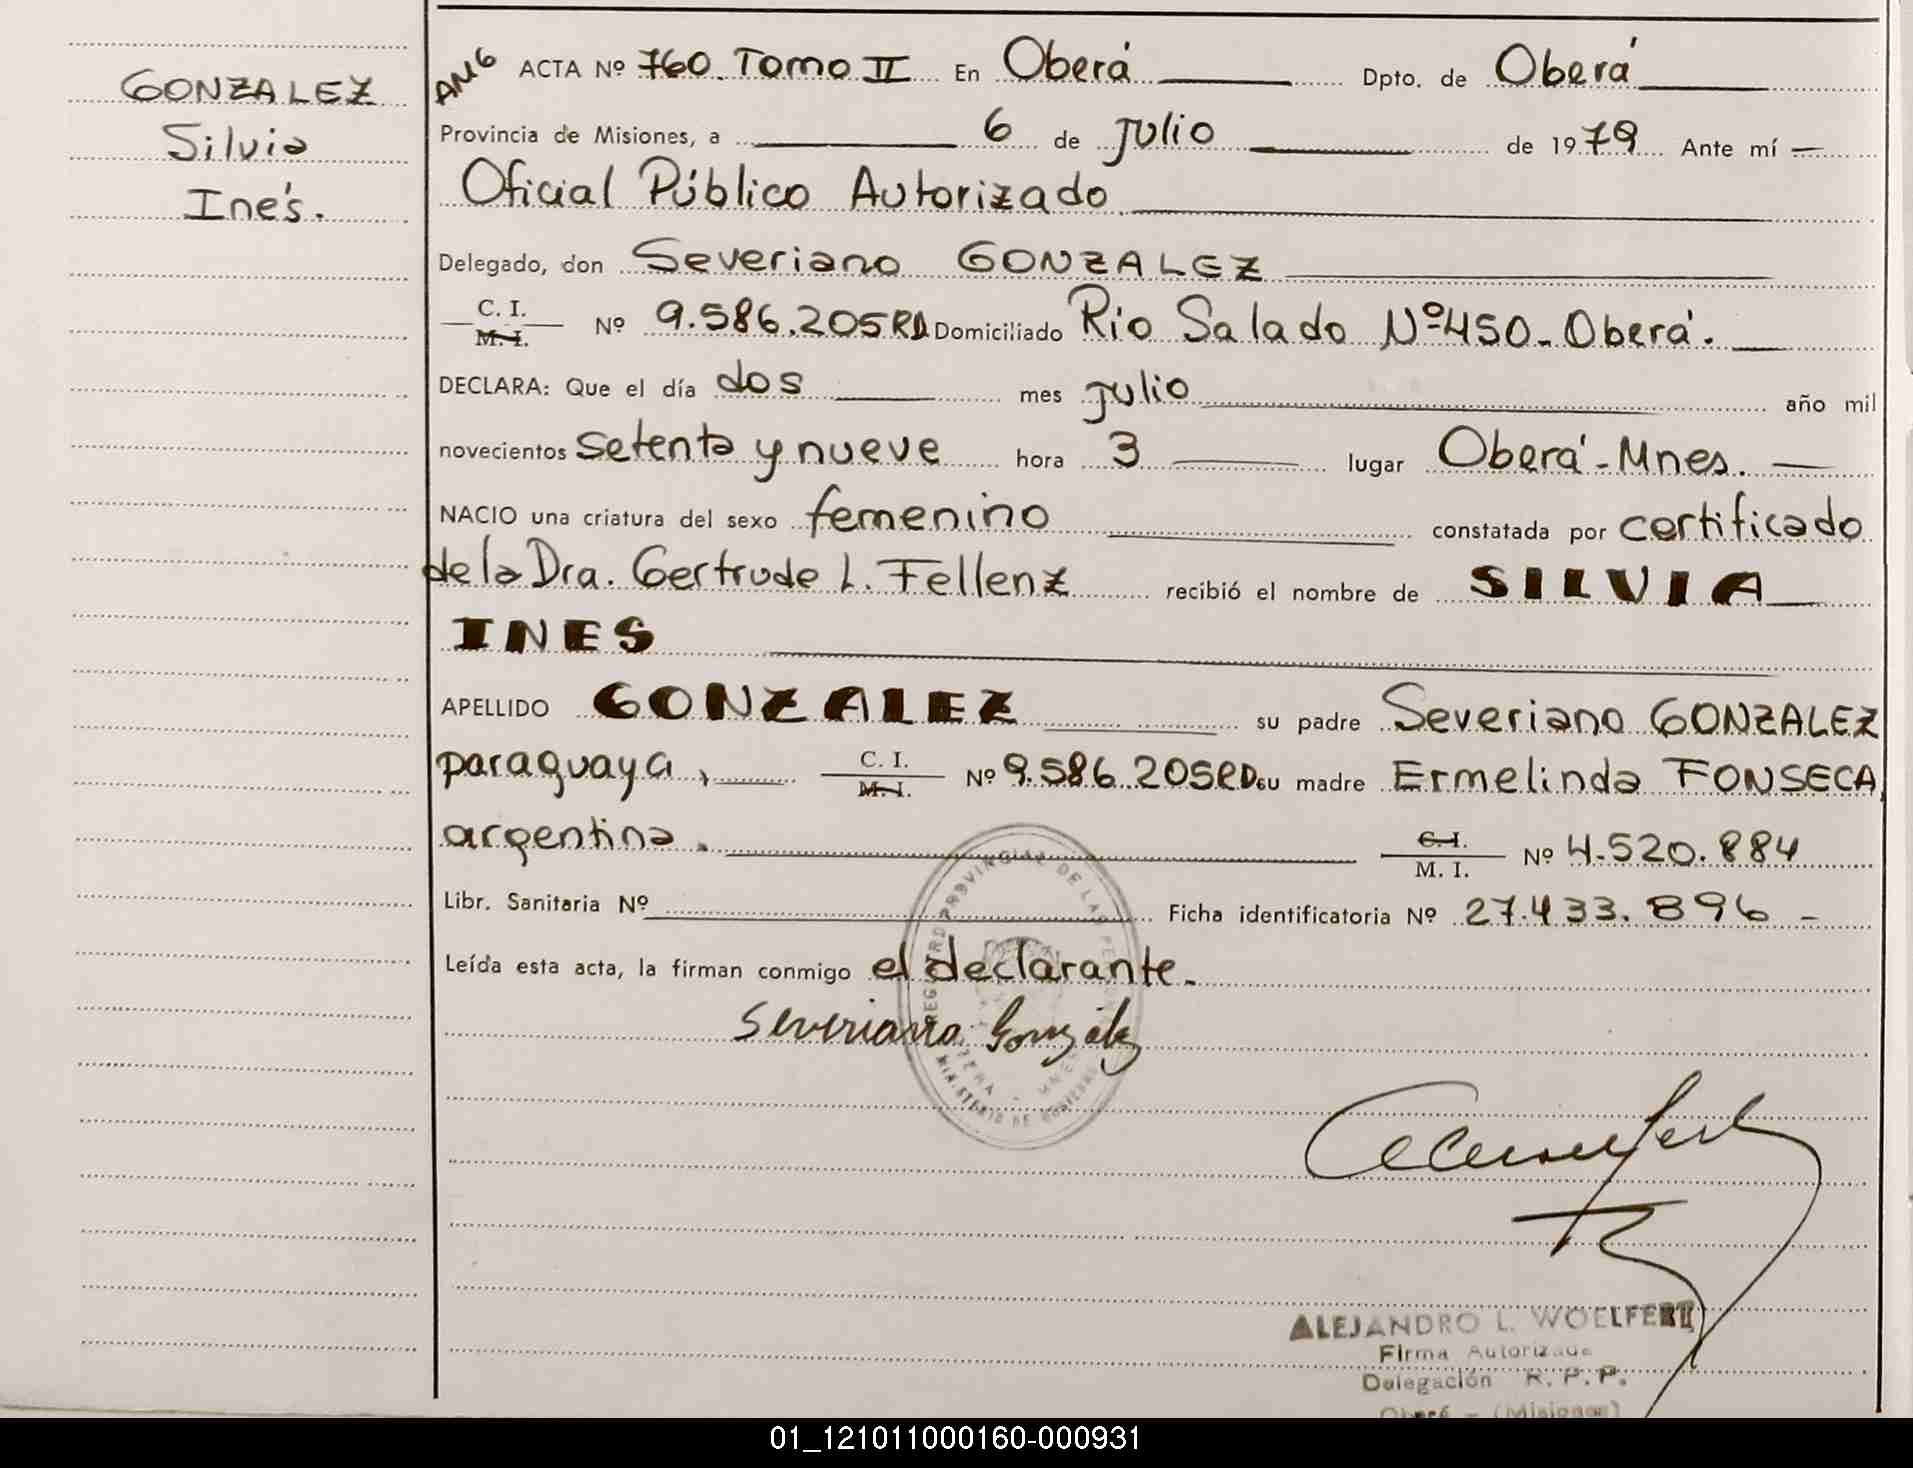 GONZALEZ
Silvia
Inés.
ANG ACTA Nº 760. Tomo II En Oberá Dpto. de Oberá
Provincia de Misiones, a 6 de Julio de 1979 Ante mí
Oficial Público Autorizado
Delegado, don Severiano GONZALEZ
C. I.
M. I. Nº 9.586.205RD Domiciliado Rio Salado Nº 450- Oberá.
DECLARA: Que el día dos mes Julio año mil
novecientos setenta y nueve hora 3 lugar Oberá-Mnes.
NACIO una criatura del sexo femenino constatada por certificado
de la Dra. Gertrude L. Fellenz recibió el nombre de SILVIA
INES
APELLIDO GONZALEZ su padre Severiano GONZALEZ
paraguaya, C. I. Nº 9.586.205RD su madre Ermelinda FONSECA,
M. I.
argentina. C. I. Nº 4.520.884
M. I.
Libr. Sanitaria Nº Ficha identificatoria Nº 27.433.896-
Leída esta acta, la firman conmigo el declarante.
Severiano González
REGISTRO PROVINCIAL DE LAS PE
MINISTERIO DE GOBIERNO
ALEJANDRO L. WOELFERT
Firma Autorizada
Delegación R. P. P.
Oberá - (Misiones)
01_121011000160-000931